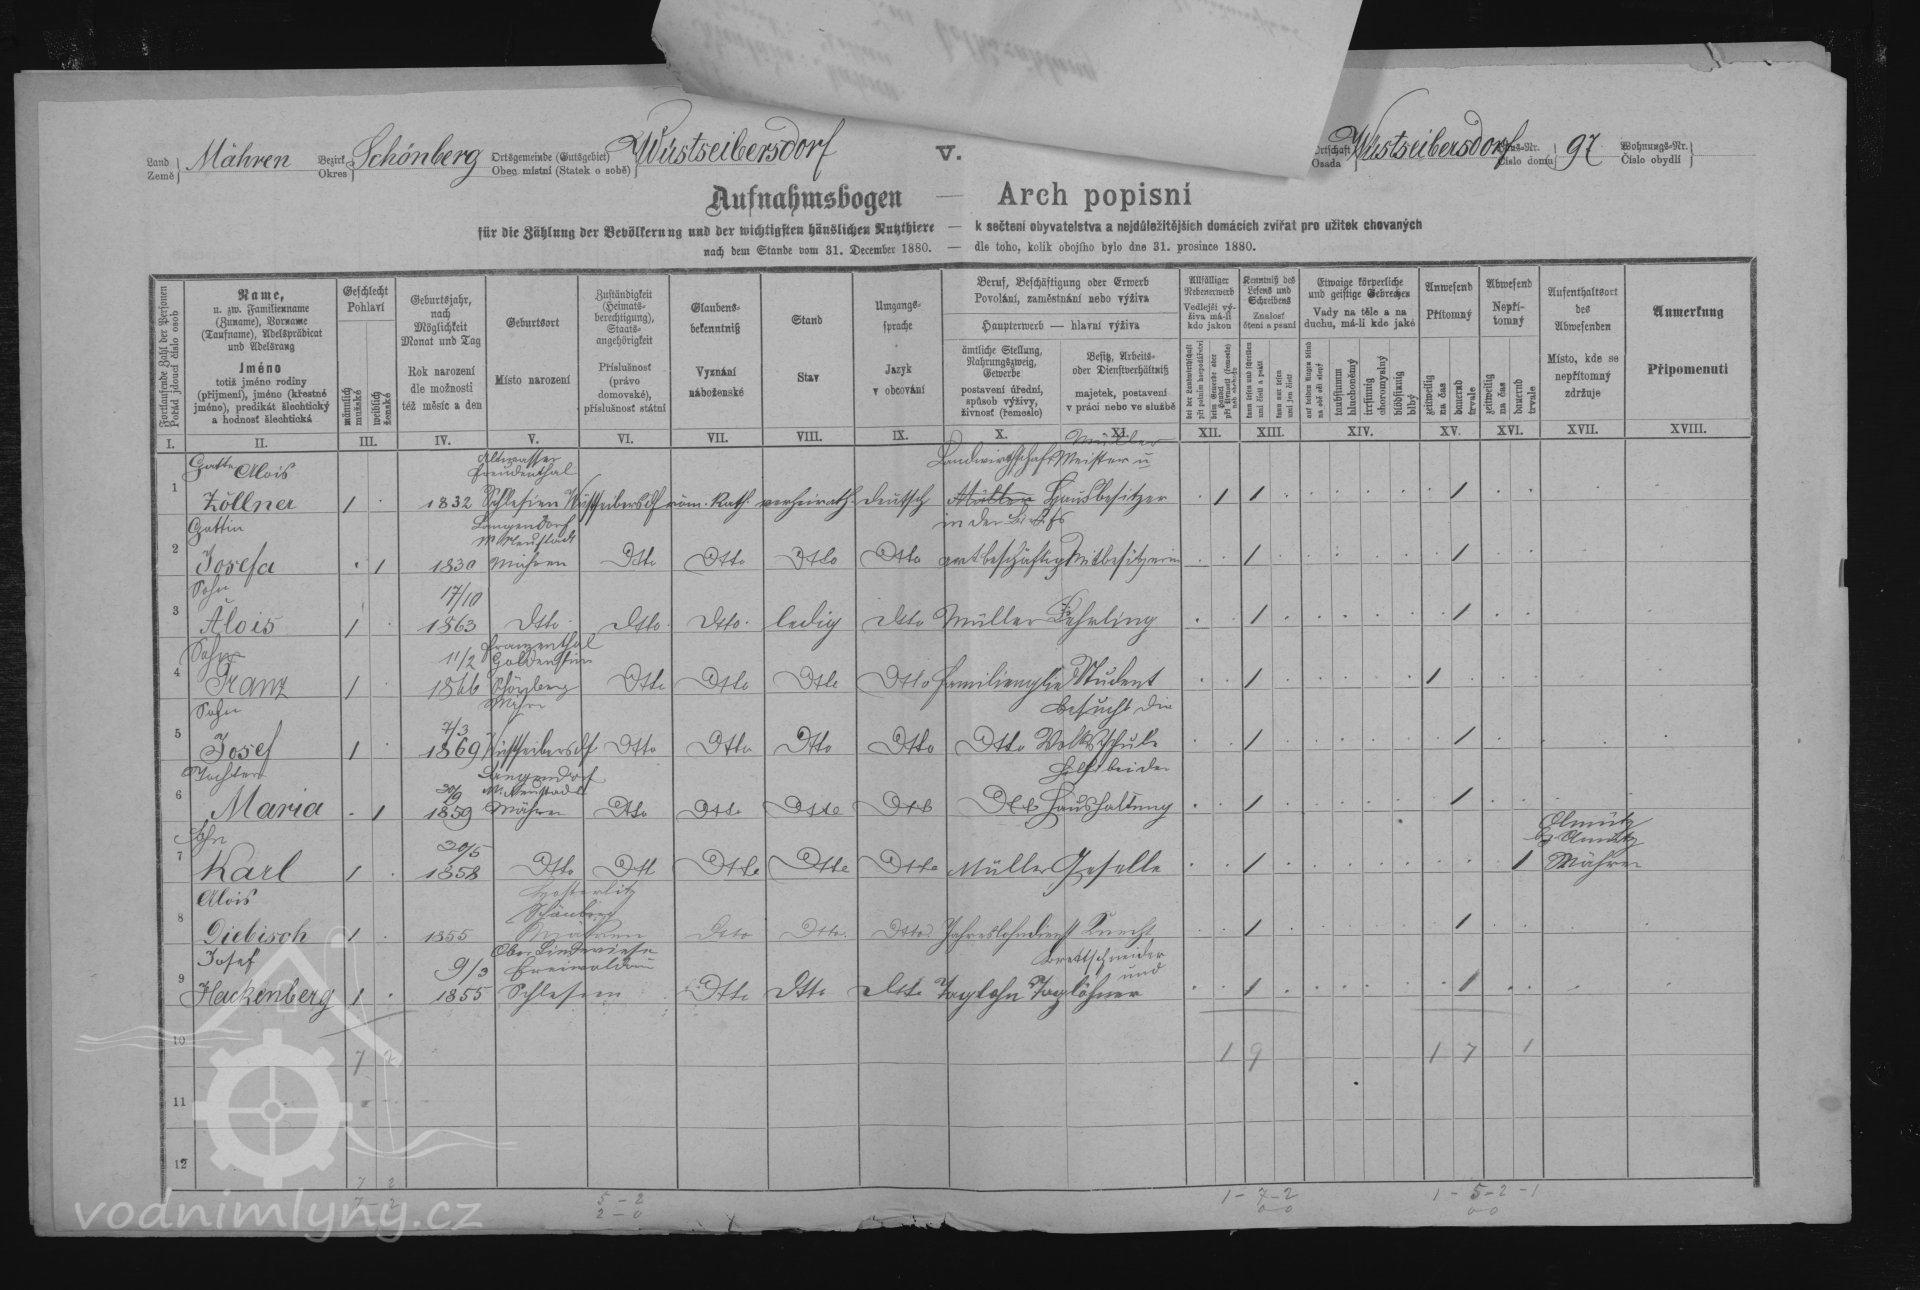 Land Země Mähren Bezirk Okres Schönberg Ortsgemeinde (Gutsgebiet) Obec místní (Statek o sobě) Wüstseibersdorf V. Ortschaft Osada Wüstseibersdorf Haus-Nr. Číslo domu 97 Wohnungs-Nr. Číslo obydlí
Aufnahmsbogen — Arch popisní
für die Zählung der Bevölkerung und der wichtigsten häuslichen Nutzthiere — k sečtení obyvatelstva a nejdůležitějších domácích zvířat pro užitek chovaných
nach dem Stande vom 31. December 1880. — dle toho, kolik obojího bylo dne 31. prosince 1880.
Fortlaufende Zahl der Personen
Pořád jdoucí číslo osob
Name,
u. zw. Familienname
(Zuname), Vorname
(Taufname), Adelsprädicat
und Adelsrang
Jméno
totiž jméno rodiny
(příjmení), jméno (křestné
jméno), predikát šlechtický
a hodnost šlechtická
Geschlecht
Pohlaví
männlich
mužské
weiblich
ženské
Geburtsjahr,
nach
Möglichkeit
Monat und Tag
Rok narození
dle možnosti
též měsíc a den
Geburtsort
Místo narození
Zuständigkeit
(Heimats-
berechtigung),
Staats-
angehörigkeit
Příslušnost
(právo
domovské),
příslušnost státní
Glaubens-
bekenntniß
Vyznání
náboženské
Stand
Stav
Umgangs-
sprache
Jazyk
v obcování
Beruf, Beschäftigung oder Erwerb
Povolání, zaměstnání nebo výživa
Haupterwerb — hlavní výživa
ämtliche Stellung,
Nahrungszweig,
Gewerbe
postavení úřední,
spůsob výživy,
živnosť (řemeslo)
Besitz, Arbeits-
oder Dienstverhältniß
majetek, postavení
v práci nebo ve službě
Allfälliger
Nebenerwerb
Vedlejší vý-
živa má-li
kdo jakou
Kenntniß des
Lesens und
Schreibens
Znalosť
čtení a psaní
Etwaige körperliche
und geistige Gebrechen
Vady na těle a na
duchu, má-li kdo jaké
taubstumm
hluchoněmý
irrsinnig
choromyslný
blödsinnig
blbý
Anwesend
Přítomný
zeitweilig
na čas
dauernd
trvale
Abwesend
Nepří-
tomný
zeitweilig
na čas
dauernd
trvale
Aufenthaltsort
des
Abwesenden
Místo, kde se
nepřítomný
zdržuje
Anmerkung
Připomenutí
I. II. III. IV. V. VI. VII. VIII. IX. X. XI. XII. XIII. XIV. XV. XVI. XVII. XVIII.
Gatte Alois Altwasser Freudenthal Landwirtschaft Müller Meister u
1 Zöllner 1 1832 Schlesien Wüstseibersdf röm. Kath. verheirath. deutsch Müller Hausbesitzer 1 1 1
Gattin Langendorf M Neustadt in der
2 Josefa 1 1830 Mähren Dtto Dtto Dtto Dtto Mitbesitzerin 1 1
Sohn 17/10
3 Alois 1 1863 Dtto Dtto Dtto ledig Dtto Müller Lehrling 1 1
Sohn 11/2 Franzenthal Goldenstein
4 Franz 1 1866 Schönberg Mähren Dtto Dtto Dtto Dtto Student 1 1
Sohn 7/3 besucht die
5 Josef 1 1869 Wüstseibersdf Dtto Dtto Dtto Dtto Dtto Volksschule 1 1
Tochter 20/9 Langendorf M. Neustadt hilft bei der
6 Maria 1 1859 Mähren Dtto Dtto Dtto Dtto Dtto Haushaltung 1 1
Sohn 20/5 Olmütz Bz Olmütz
7 Karl 1 1858 Dtto Dtto Dtto Dtto Dtto Müller Geselle 1 1 Mähren
Alois Schönberg
8 Diebisch 1 1855 Mähren Dtto Dtto Dtto Jahreslohndienst Knecht 1 1
Josef 9/3 Ober Lindewiese Freiwaldau Brettschneider und
9 Hackenberg 1 1855 Schlesien Dtto Dtto Dtto Taglohn Taglöhner 1 1
10 7 2 1 9 1 7 1
11
12
7 2
7 - 2 5 - 2 1 - 7 - 2 1 - 5 - 2 - 1
2 - 0 0 - 0 0 0
vodnimlyny.cz